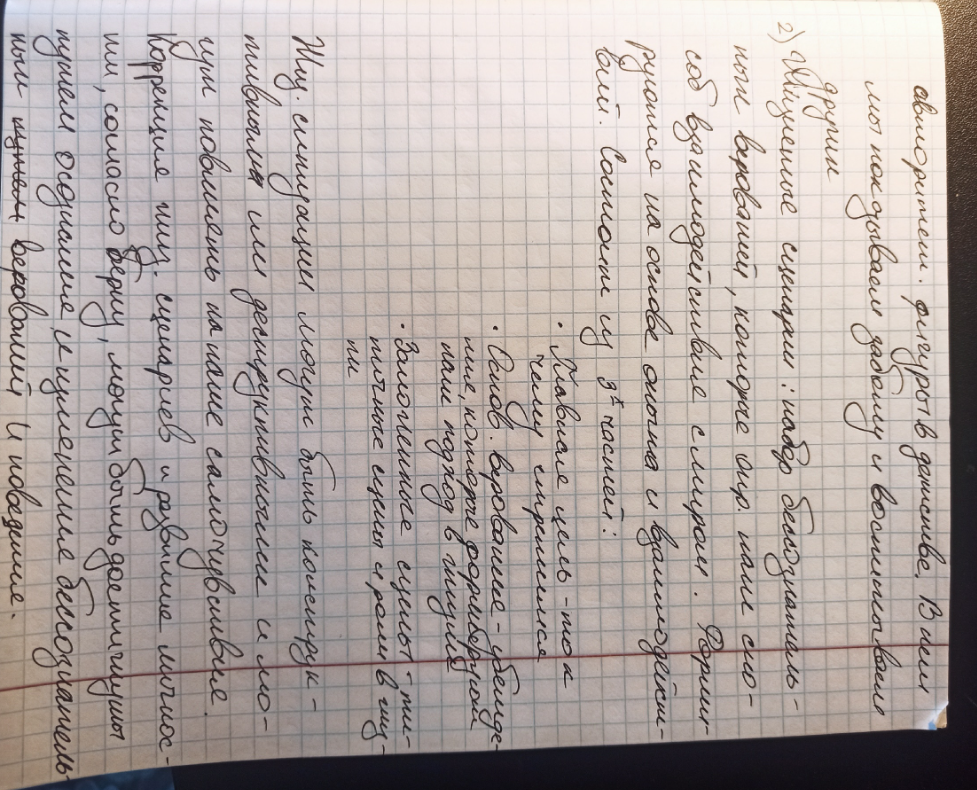 авторитет. фигуры в детстве. В нем
мы покадываем заботу и воспитываем
других
2) Жизненные сценарии: набор бессознатель-
ных верований, которые опр. наше спо-
соб взаимодействие с миром. Форми-
руются на основе опыта и взаимодейст-
вий. Состоит из 3х частей:
· Главная цель - то к
чему стремимся
· Основ. верование - убежде-
ние, которые формируют
наш подход в жизни
· Заложенные сцены - ти-
пичные сцены и роли в жиз-
ни
Жиз. ситуации могут быть конструк-
тивными или деструктивными и мо-
гут повлиять на наше самочувствие.
Коррекция жиз. сценариев и развитие личнос-
ти, согласно Берну, могут быть достигнуты
путем осознания и изменение бессознатель-
ных верований и поведение.